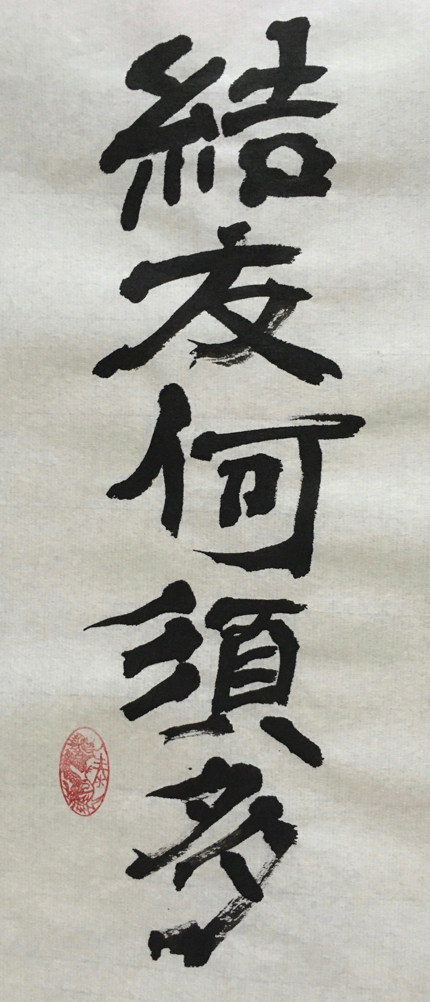 結友何須多